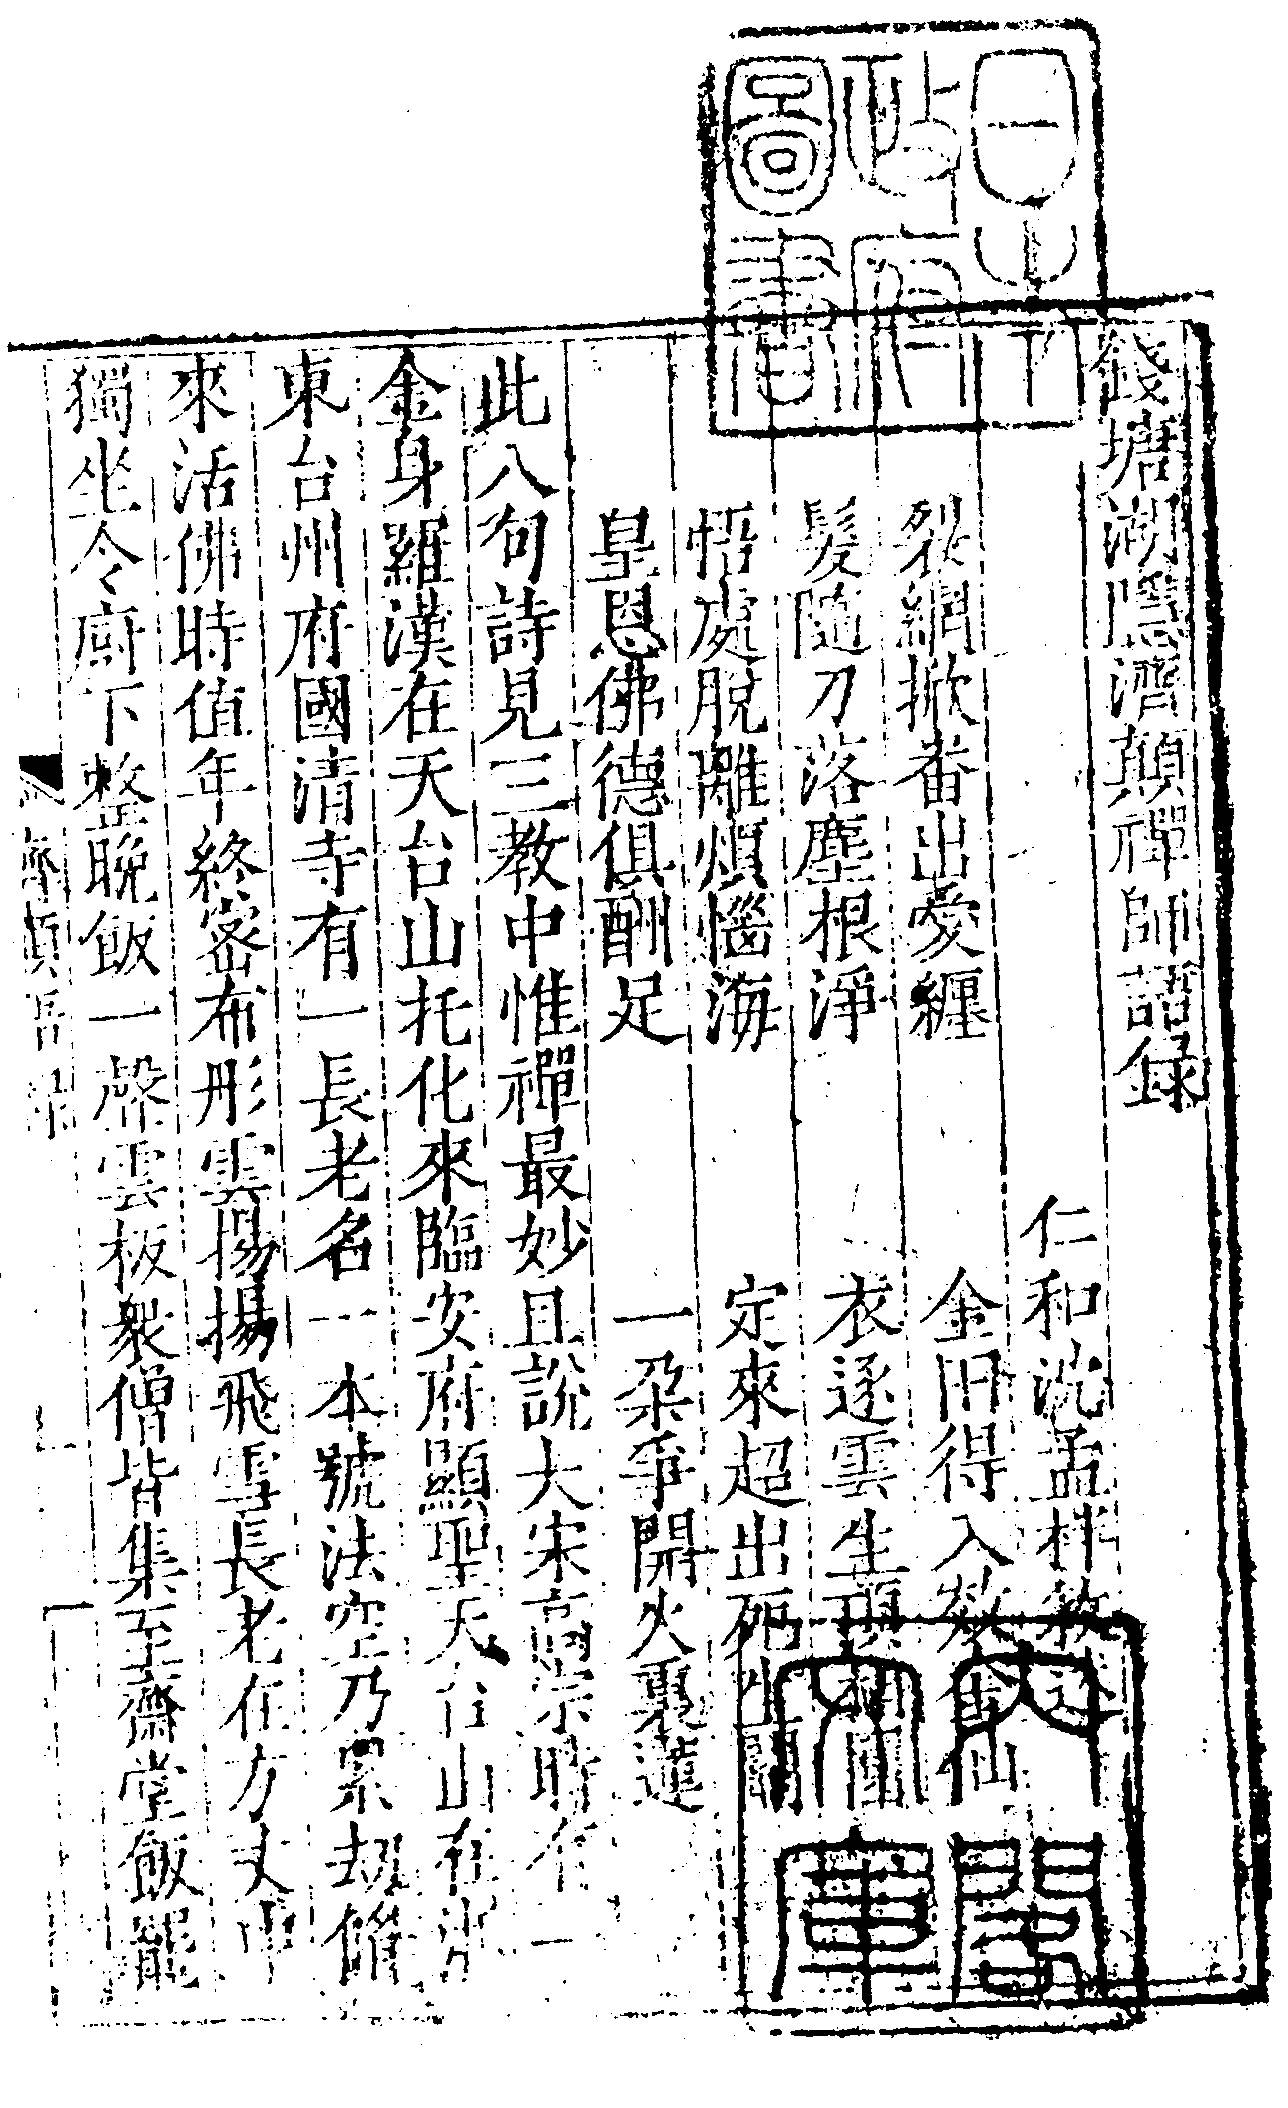 錢塘湖隱濟顛禪師語録
仁和沈孟柈敘述
裂網掀番出愛纏 金田得入效金仙
髮隨刀落塵根淨 衣逐雲生頂相圓
悟處脫離煩惱海 定來超出死生關
皇恩佛德俱酬足 一朶爭開火裏蓮
此八句詩見三教中惟禪最妙且說大宋高宗時有一
金身羅漢在天台山托化來臨安府顯聖天台山在浙
東台州府國清寺有一長老名一本號法空乃累刧修
來活佛時值年終密布彤雲揚揚飛雪長老在方丈中
獨坐令厨下整晚飯一聲雲板衆僧皆集至齋堂飯罷
濟顛語録
日本
政府
圖書
内閣
文庫